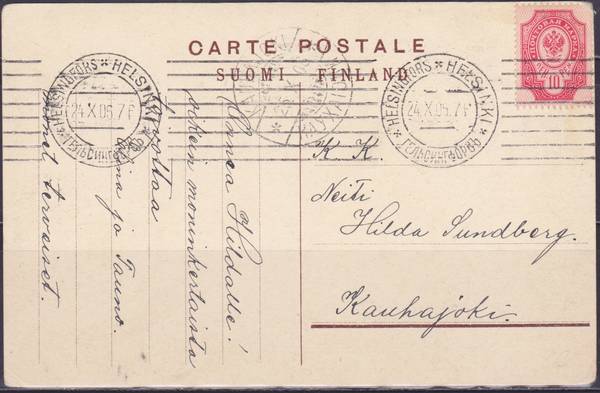 CARTE POSTALE
SUOMI. FINLAND.
HELSINGFORS * HELSINKI
24.X.05.7 F
ГЕЛЬСИНГФОРСЪ
HELSINGFORS * HELSINKI
24.X.05.7 F
* ГЕЛЬСИНГФОРСЪ
ПОЧТОВАЯ МАРКА
10
K. K.
Neiti
Hilda Sundberg.
Kauhajoki.
Onnea Hildalle!
oikein moninkertaista
toivottaa
Aina ja Tauno.
terveiset.